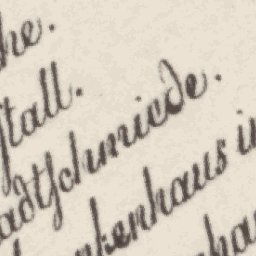 he.
stall.
adtschmiede.
nkenhaus in